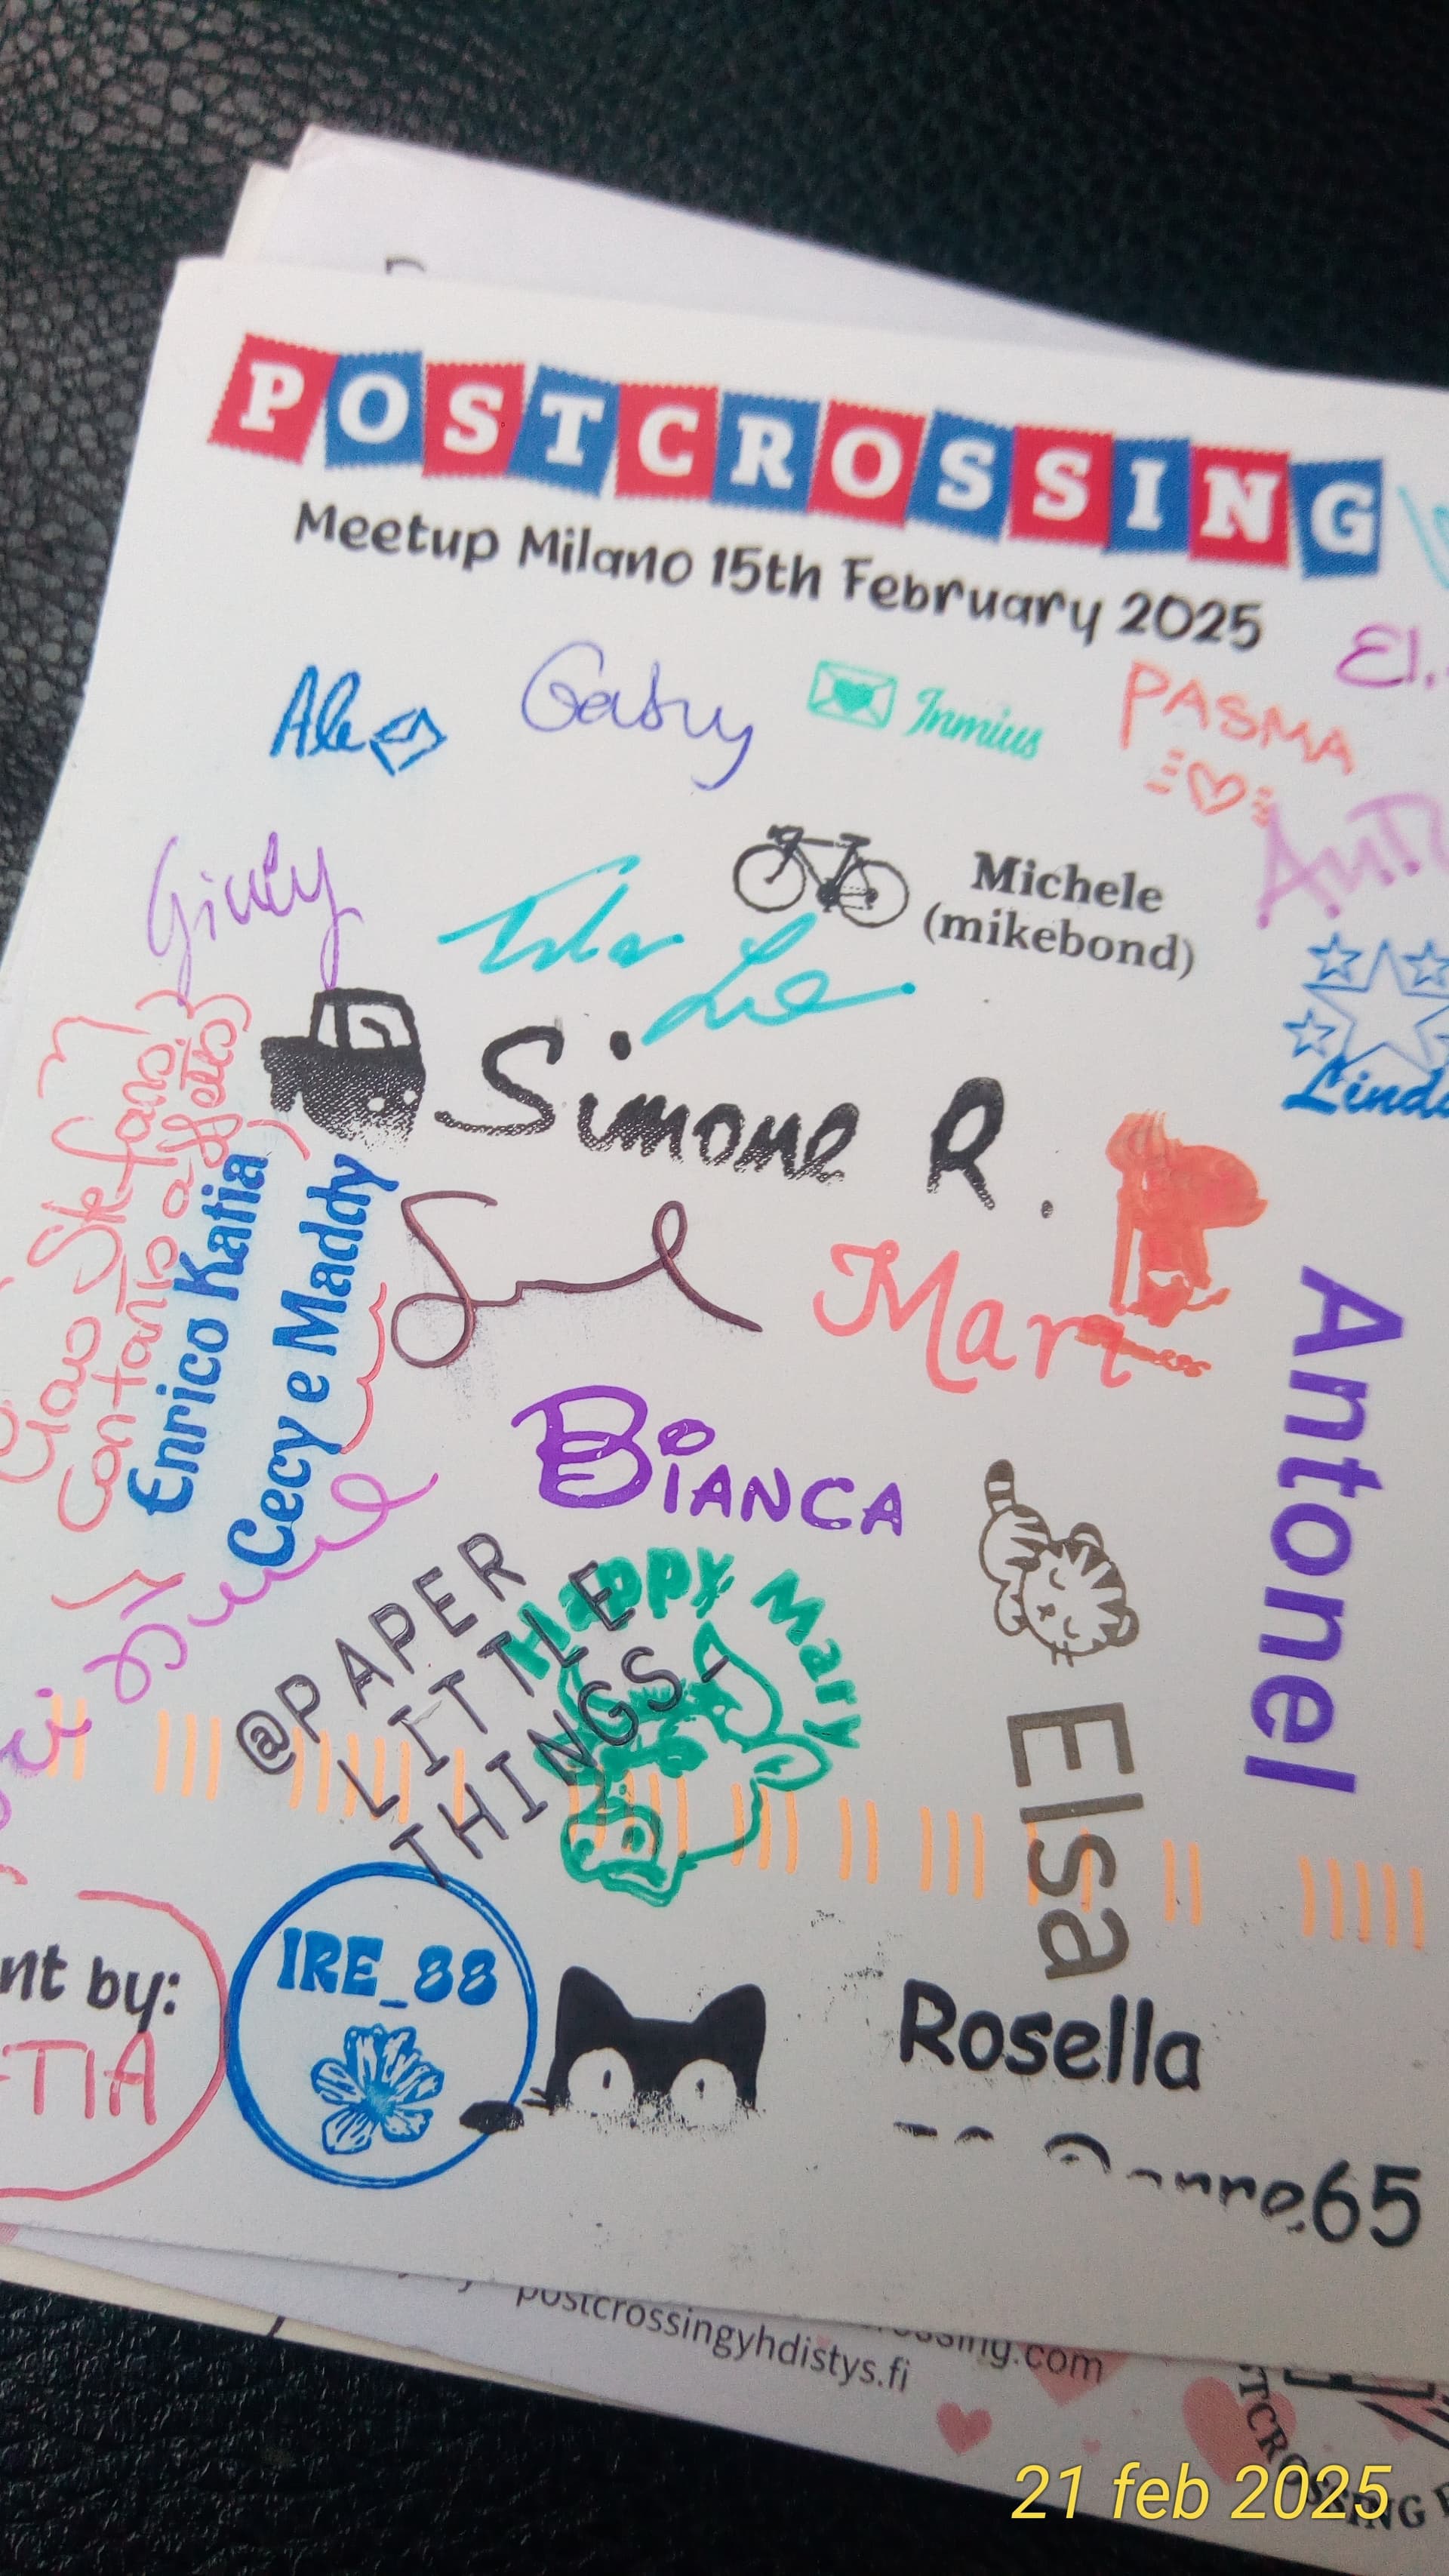 POSTCROSSING
Meetup Milano 15th February 2025
El.
Ale
Gabry
Inmius
PASMA
Giuly
Michele
(mikebond)
Simone R.
Linda
Ciao Stefano!
Con tanto affetto
Enrico Katia
Cecy e Maddy
Mart
Antonel
BIANCA
@PAPER
LITTLE
THINGS-
Happy Mary
Elsa
nt by:
TIA
IRE_88
Rosella
65
postcrossingyhdistys.fi
ossing.com
TCROSSING
21 feb 2025